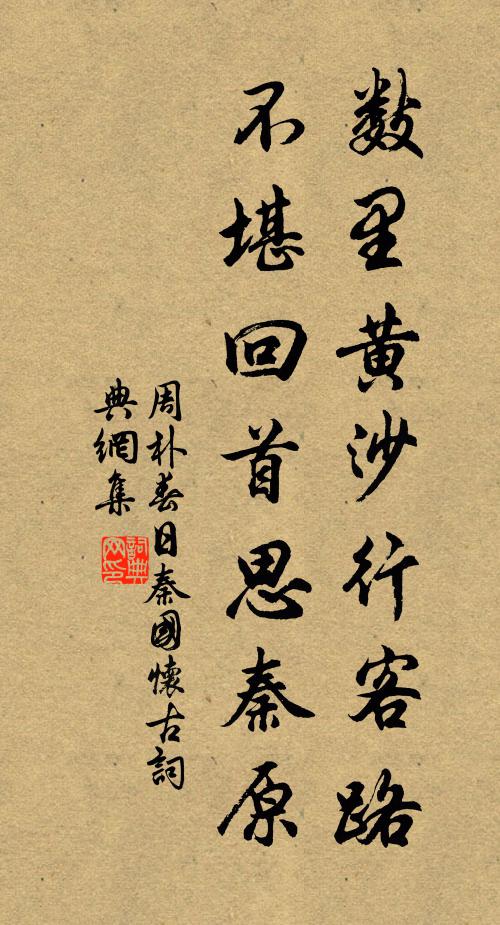 數里黄沙行客路
不堪回首思秦原
周朴春日秦國懷古詞
典網集
詞典
网印